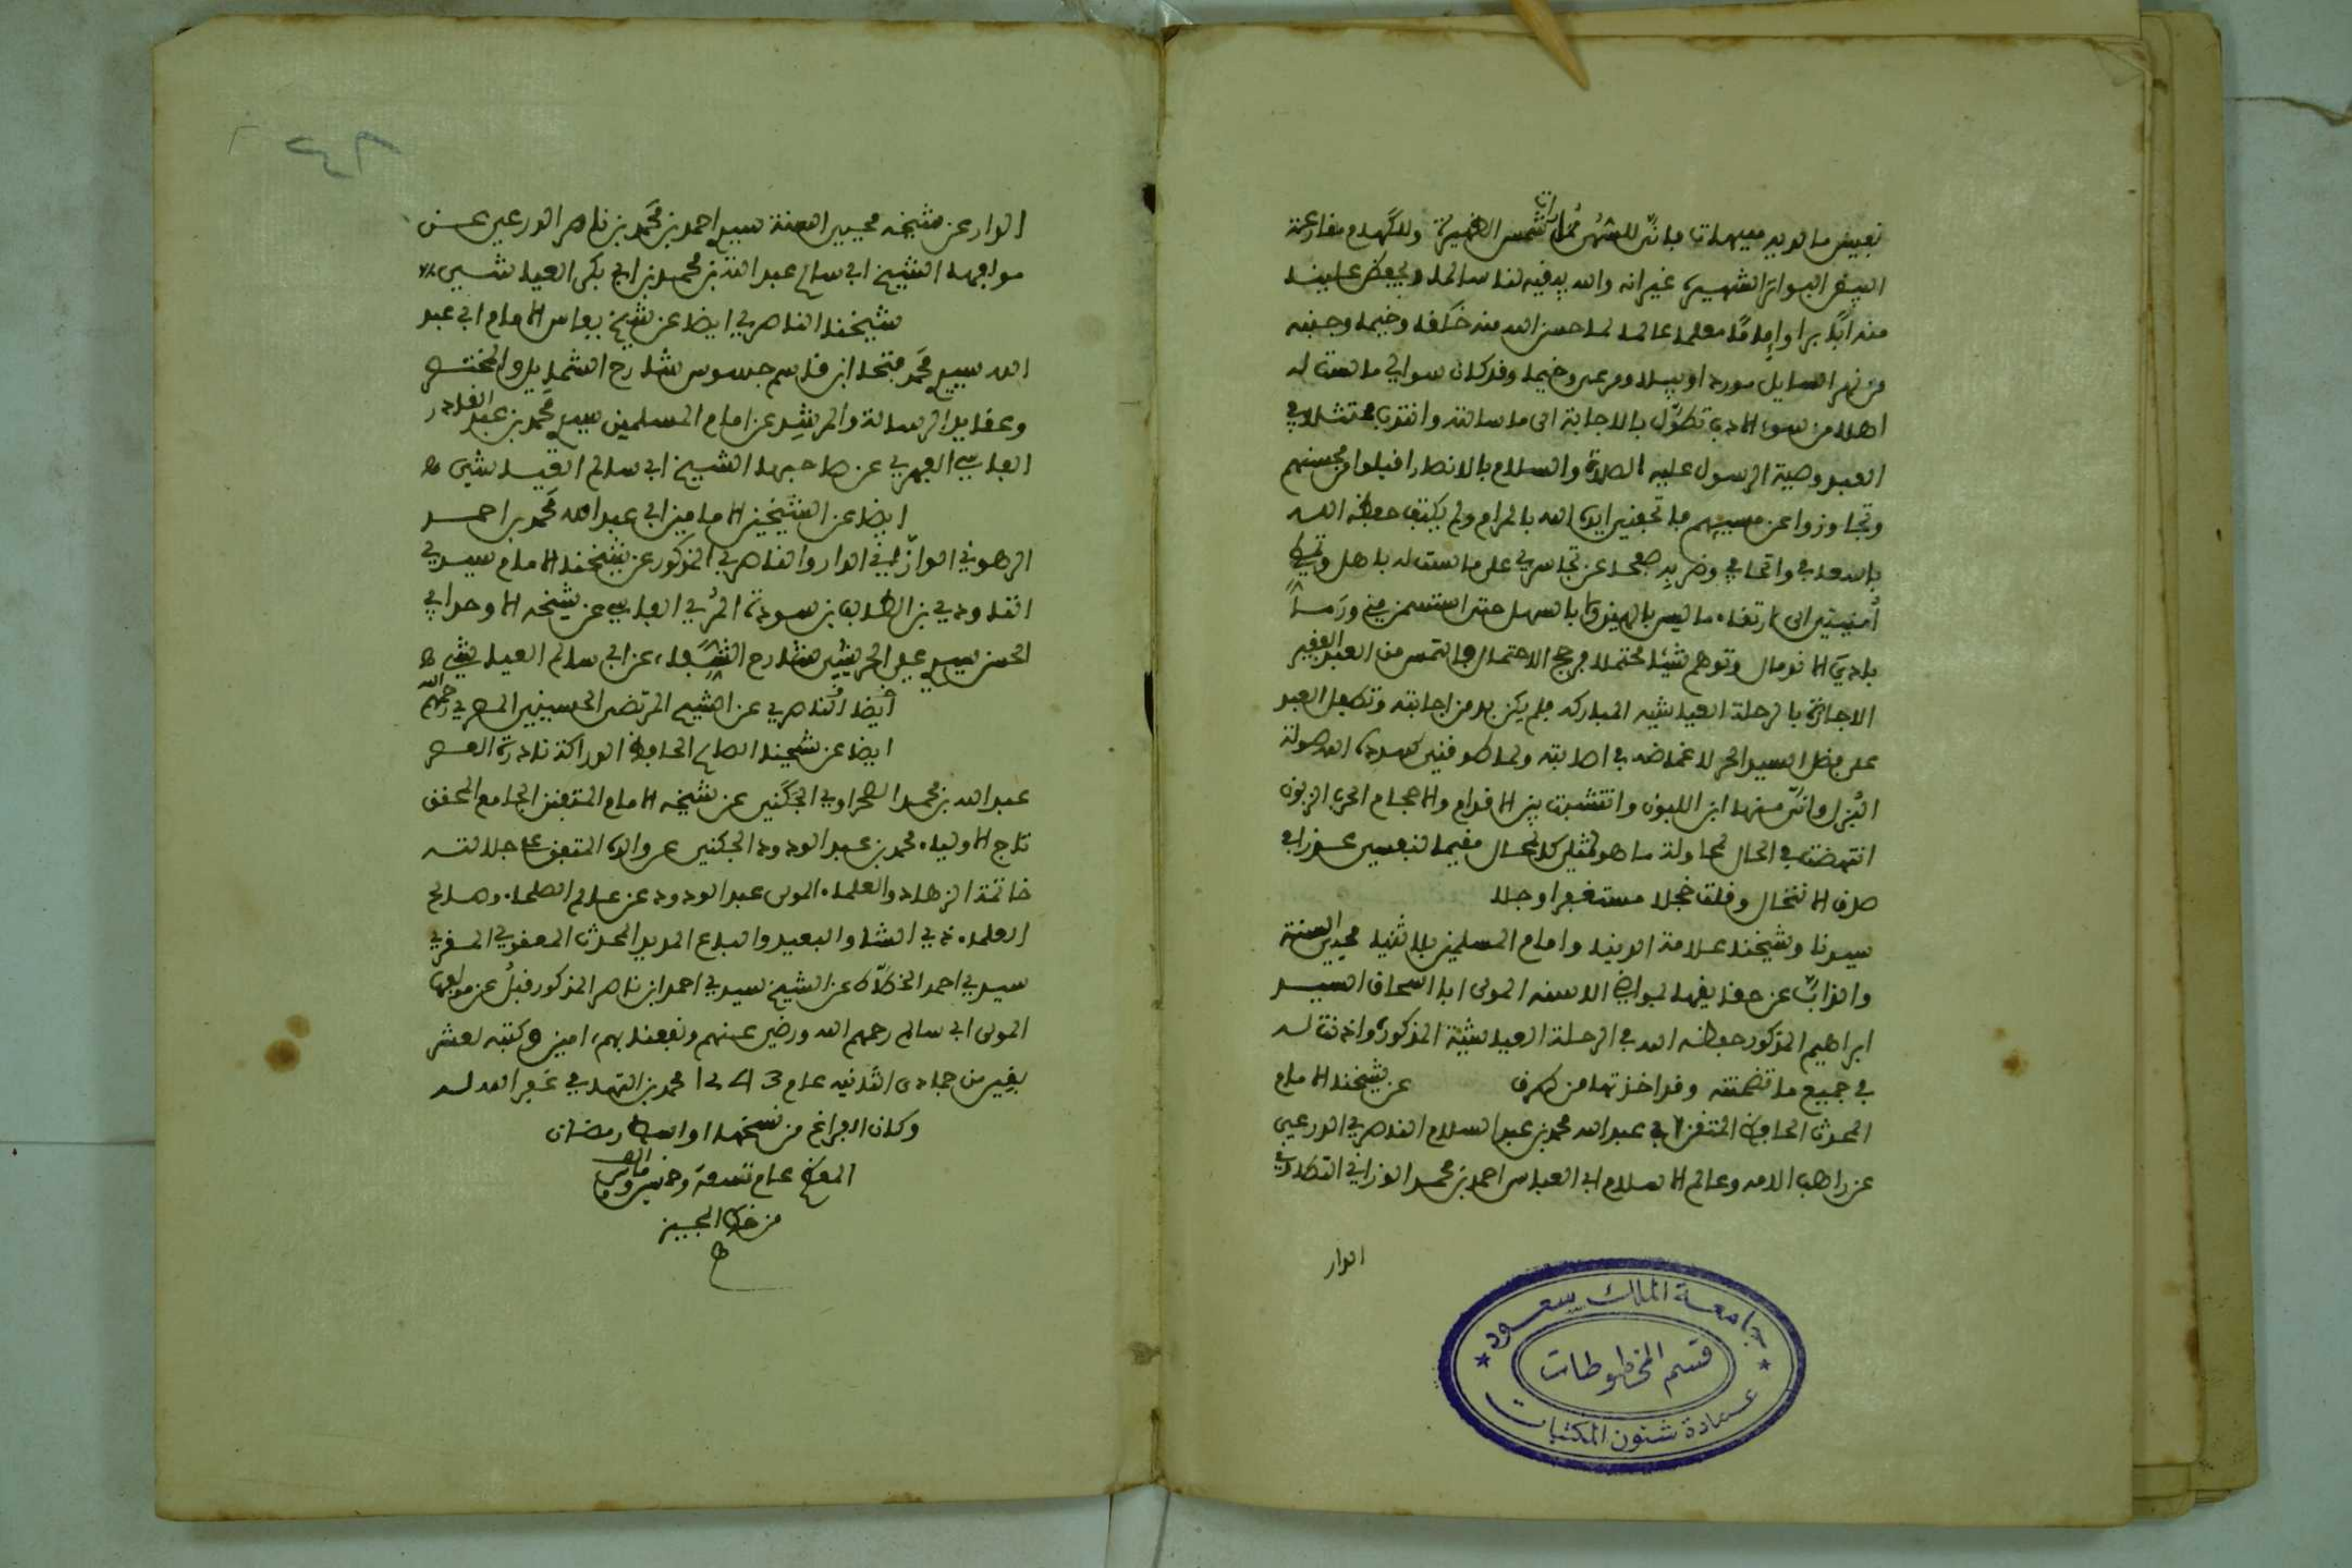 بعيض ما لديه سيهات فانى للسُهى مجارات شمس الظهيرة وللكهام مضارعة
السيف البواتر الشهيرة غير انه والله يديه لنا سالما ويجعله علينا
منه ابا برا واماما معلما عالما لما حسن الله منه خلقا وخيما وجنبه
من نهر السايل موردا وبيلا ومرعى وخيما وقد كان سوالي ما لست له
اهلا من سوء الادب تطول بالاجابة الى ما سالته وانتدب ممتثلا في
العبد وصية الرسول عليه الصلاة والسلام بالانصار اقبلوا من محسنهم
وتجاوزوا عن مسيئهم فاتحفني ايده الله بالمرام ولم يكتف حفظه الله
باسعافي واتحافي وضربه صفحا عن تجاسري على ما لست له باهل
أمنيتي الى ارتقاء ما ليس بالهين ولا بالسهل حتى استسمن مني ورما
بادي الانوصال وتوهم شيئا محتملا فرجح الاحتمال والتمس من العبد الفقير
الاجازة بالرحلة العياشية المباركة فلم يكن بد من اجابته وتطفل العبد
على فضل السيد الحر لا غضاضة في اصابته ولما طوقني كهادة الله صولة
البزل وانى منها ابن اللبون وانتشبت بين الاقدام والاحجام الحرب الزبون
انتهضت في الحال لمحاولة ما هو لمثلي كالمحال مقيما لنفسي عذرا في
صرف الانتحال وقلت خجلا مستغفرا وجلا
سيدنا وشيخنا علامة الدنيا وامام المسلمين بلا ثنيا محيي السنة
والذاب عن حقايقها لبواضح الاسنة المولى ابا اسحاق السيد
ابراهيم المذكور حفظه الله في الرحلة العياشية المذكورة واذنت له
في جميع ما تضمنته وقد اخذتها من طرق عن شيخنا الامام
المحدث الحافظ المتفنن ابي عبد الله محمد بن عبد السلام الناصري الدرعي
عن راهب الامة وعالم الاسلام ابي العباس احمد بن محمد الورزازي التطاوني
الدار
جامعة الملك سعود
قسم المخطوطات
عمادة شئون المكتبات
الدار عن شيخه محيي السنة سيدي احمد بن محمد بن ناصر الدرعي عن
مولفها الشيخ ابي سالم عبد الله بن محمد بن ابي بكر العياشي ح
شيخنا الناصري ايضا عن شيخ بفاس الامام ابي عبد
الله سيدي محمد فتحا ابن قاسم جسوس شارح الشمايل والمختصر
وعقايد الرسالة والمرشد عن امام المسلمين سيدي محمد بن عبد القادر
الفاسي الفهري عن صاحبها الشيخ ابي سالم العياشي ح
ايضا عن الشيخين الامامين ابي عبد الله محمد بن احمد
الرهوني الوازاني الدار والناصري المذكور عن شيخنا الامام سيدي
التاودي بن الطالب بن سودة المري الفاسي عن شيخه الاوحد ابي
الحسن سيدي علي الحريشي شارح الشفا عن ابي سالم العياشي ح
أيضا الناصري عن الشيخ المرتضى الحسيني المصري رحمهم الله
ايضا عن شيخنا الصالح الحافظ الدراكة نادرة العصر
عبد الله بن محمد الصحراوي الجكني عن شيخه الامام المتفنن الجامع المحقق
تاج الاولياء محمد بن عبد الودود الجكني عن والده المتفق على جلالته
خاتمة الزهاد والعلماء المولى عبد الودود عن عالم الصلحاء وصالح
العلماء ذي الشاو البعيد والباع المديد المحدث المعقولي المقري
سيدي احمد الخطاط عن الشيخ سيدي احمد ابن ناصر المذكور قبل عن مولفها
المولى ابي سالم رحمهم الله ورضي عنهم ونفعنا بهم امين وكتبه لعشر
بقين من جمادى الثانية عام 1243 محمد بن التهامي غفر الله له
وكان الفراغ من نسخها اواسط رمضان
المعظم عام تسعة وخمسين ومائتين والف
من خط المجيز